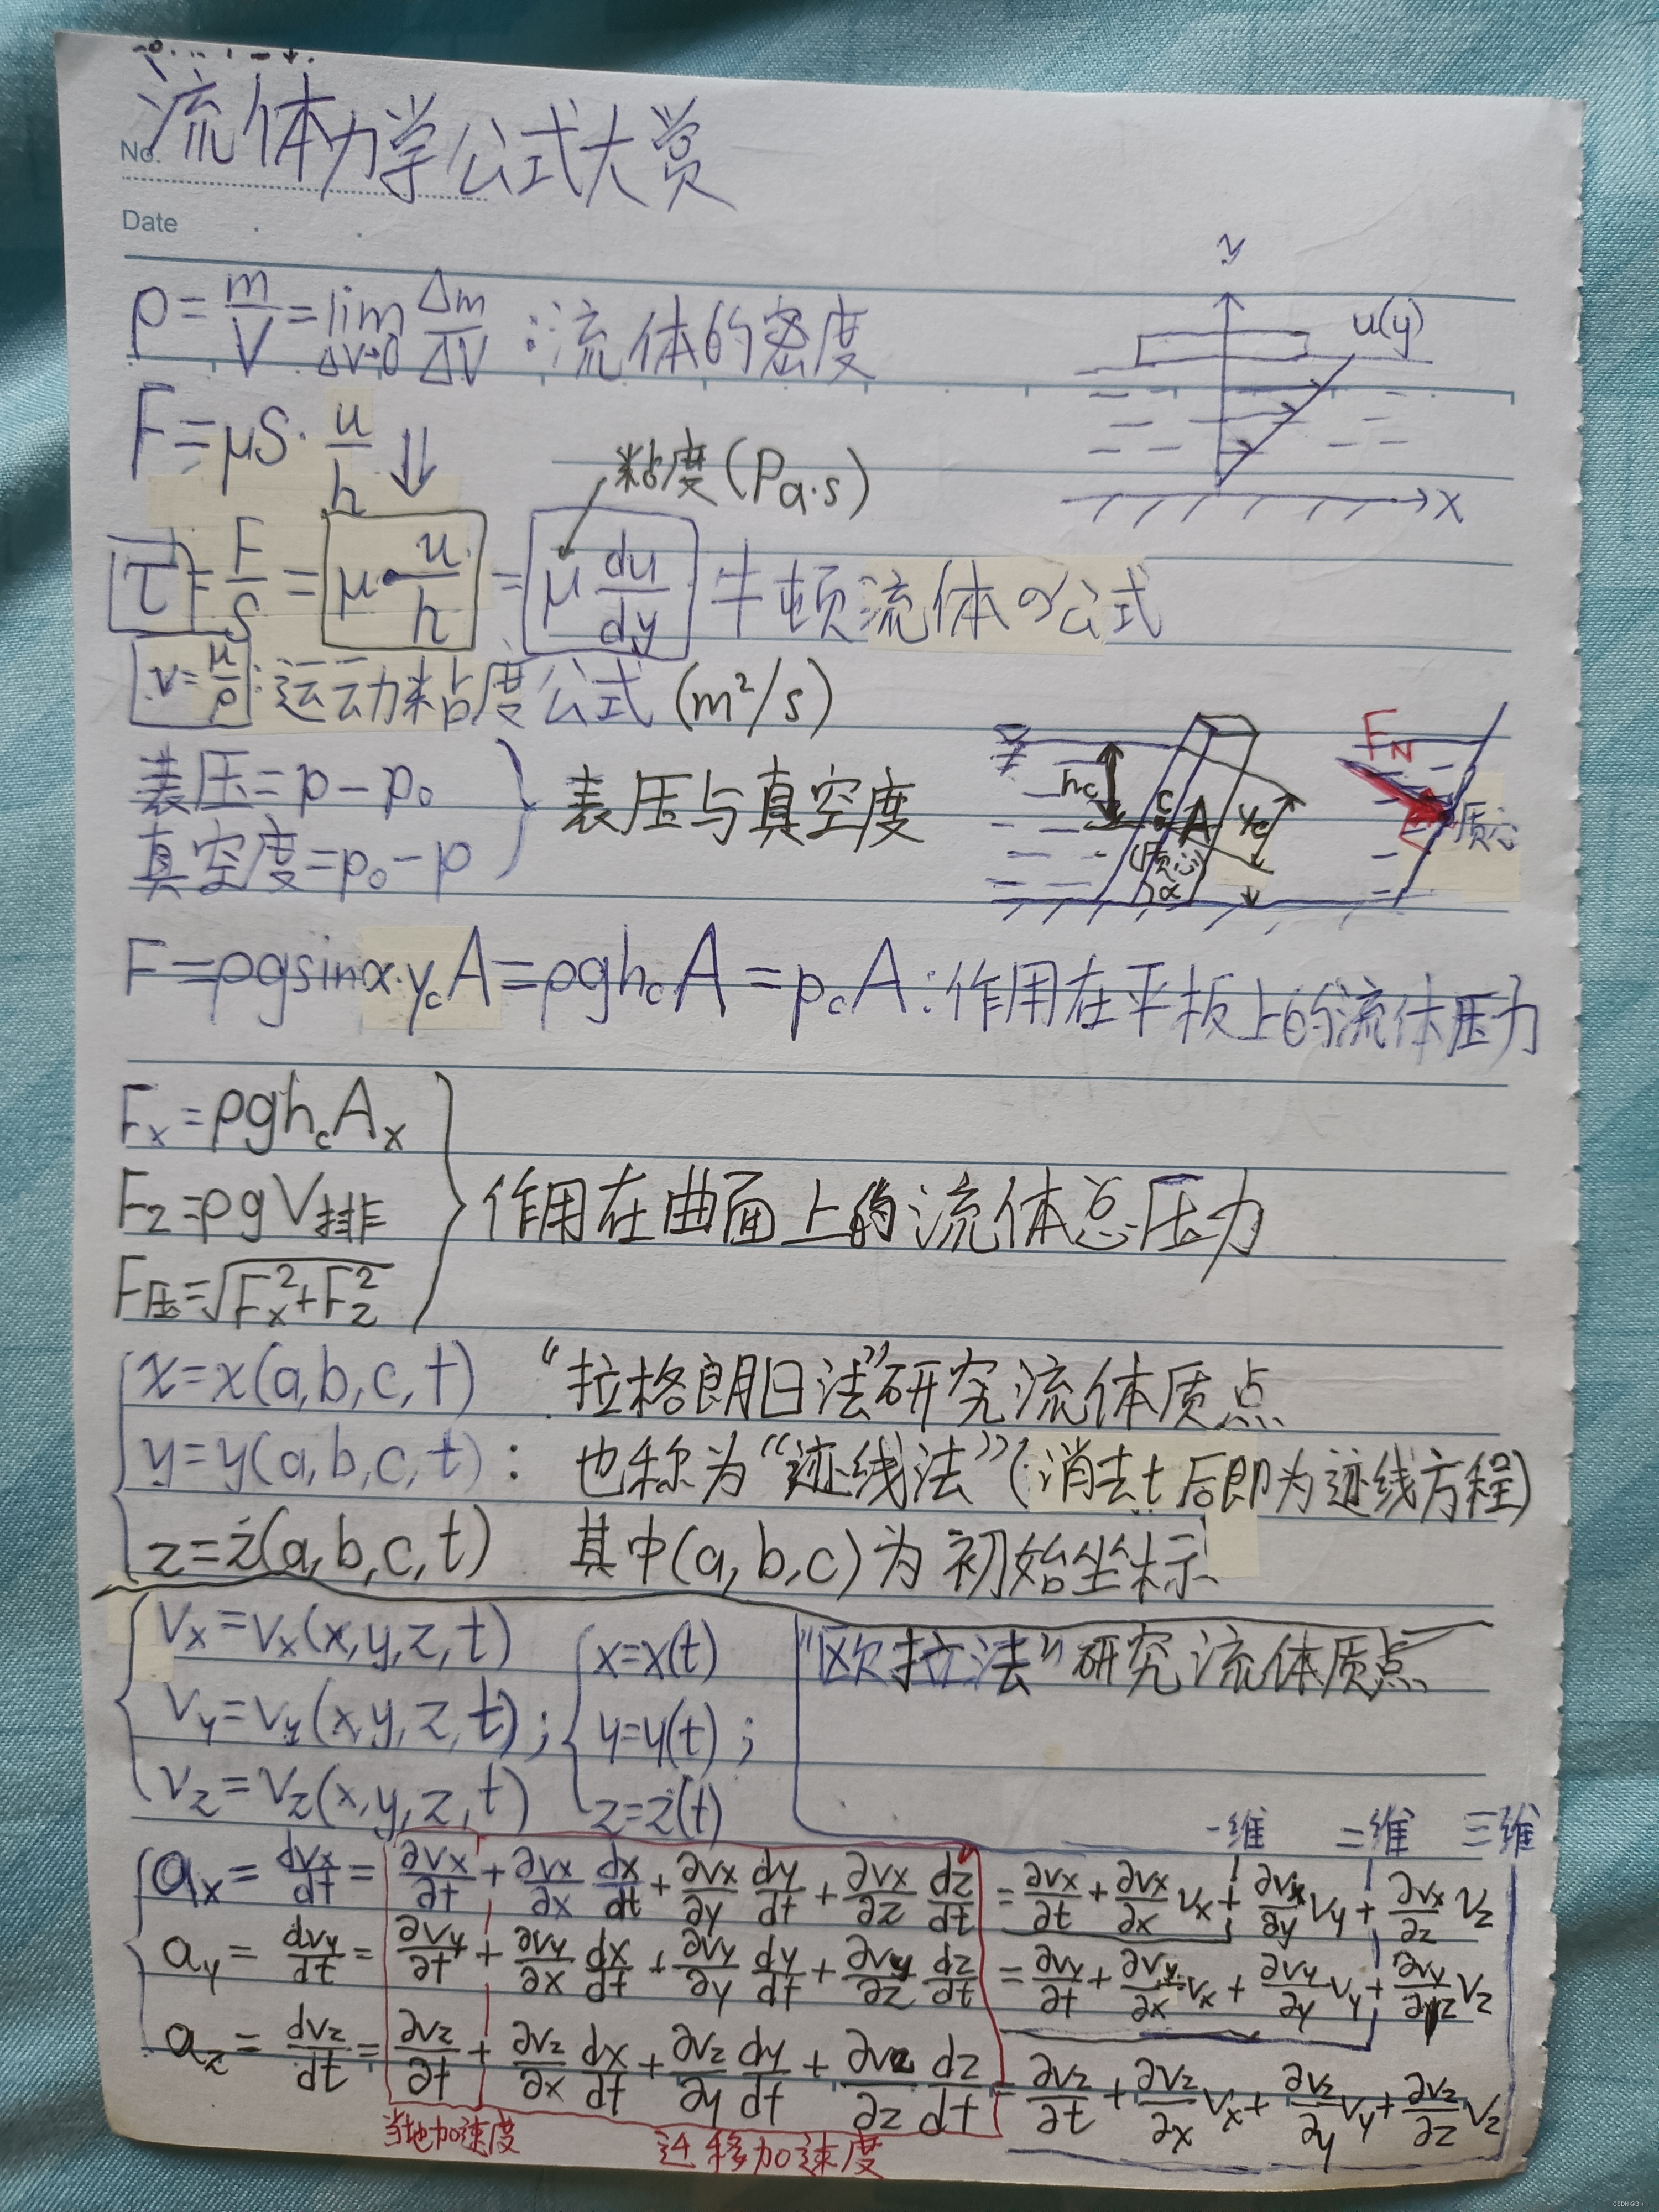 流体力学公式大赏
No.
Date
ρ=m/V=lim ΔV→0 Δm/ΔV:流体的密度
y
u(y)
x
F=μS·u/h ⇓
粘度(Pa·s)
τ=F/S=μ·u/h=μ du/dy 牛顿流体の公式
ν=μ/ρ:运动粘度公式(m²/s)
表压=p-p₀
真空度=p₀-p
} 表压与真空度
hc
C
A
yc
(质心)
α
FN
质心
F=ρgsinα·ycA=ρghcA=pcA:作用在平板上的流体压力
Fx=ρghcAx
Fz=ρgV排
F压=√(Fx²+Fz²)
} 作用在曲面上的流体总压力
x=x(a,b,c,t) “拉格朗日法”研究流体质点
y=y(a,b,c,t): 也称为“迹线法”(消去t后即为迹线方程)
z=z(a,b,c,t) 其中(a,b,c)为初始坐标
Vx=Vx(x,y,z,t) x=x(t) “欧拉法”研究流体质点
Vy=Vy(x,y,z,t); y=y(t);
Vz=Vz(x,y,z,t) z=z(t)
一维 二维 三维
ax=dVx/dt=∂Vx/∂t+∂Vx/∂x dx/dt+∂Vx/∂y dy/dt+∂Vx/∂z dz/dt=∂Vx/∂t+∂Vx/∂x Vx+∂Vx/∂y Vy+∂Vx/∂z Vz
ay=dVy/dt=∂Vy/∂t+∂Vy/∂x dx/dt+∂Vy/∂y dy/dt+∂Vy/∂z dz/dt=∂Vy/∂t+∂Vy/∂x Vx+∂Vy/∂y Vy+∂Vy/∂z Vz
az=dVz/dt=∂Vz/∂t+∂Vz/∂x dx/dt+∂Vz/∂y dy/dt+∂Vz/∂z dz/dt=∂Vz/∂t+∂Vz/∂x Vx+∂Vz/∂y Vy+∂Vz/∂z Vz
当地加速度 迁移加速度